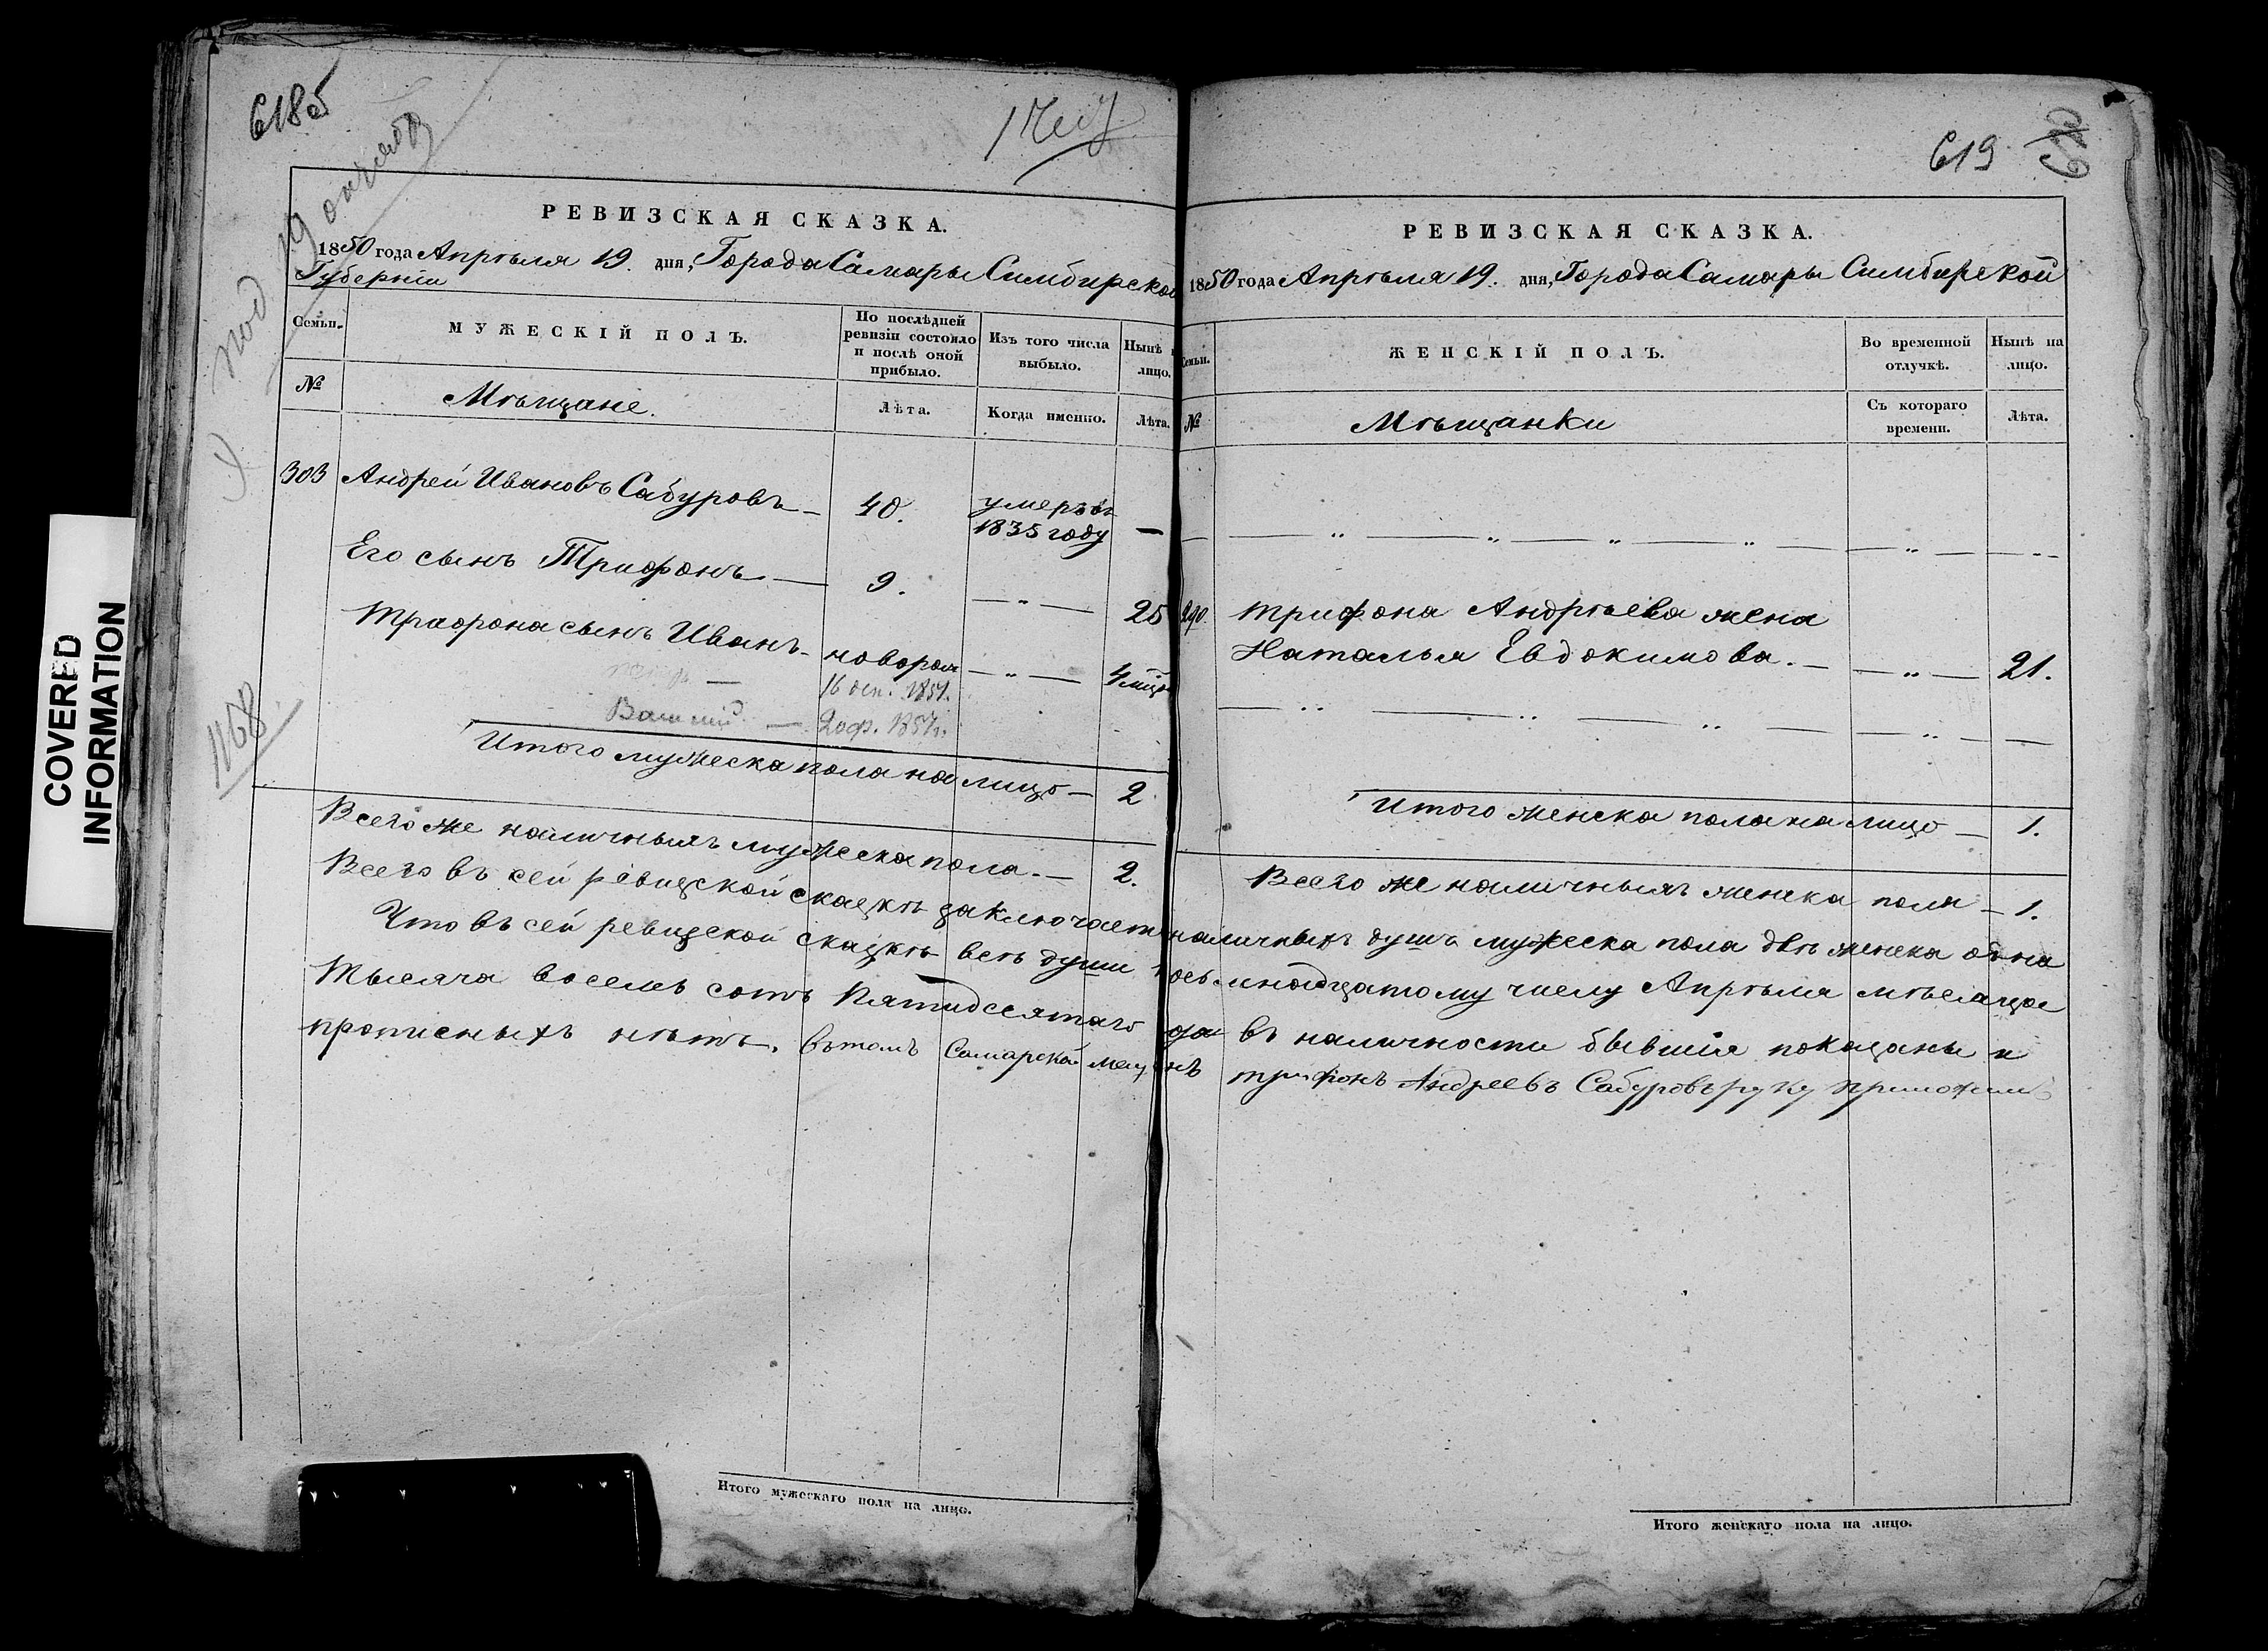 618 об
619
РЕВИЗСКАЯ СКАЗКА.
1850 года Апрѣля 19. дня, Города Самары Симбирской
Губерніи
Семьи.
МУЖЕСКІЙ ПОЛЪ.
По послѣдней
ревизіи состояло
и послѣ оной
прибыло.
Изъ того числа
выбыло.
Нынѣ
лицо.
№
Мѣщане.
Лѣта.
Когда именно.
Лѣта.
303 Андрей Ивановъ Сабуровъ — 40. умеръ въ
1835 году —
Его сынъ Трифонъ — 9. — „ — 25
Трифона сынъ Иванъ — новорож — „ — 4 мѣся
— 16 1851.
— 20 ф. 1857.
Итого мужеска пола на лицо — 2
Всего же наличныхъ мужеска пола — 2.
1168
COVERED
INFORMATION
РЕВИЗСКАЯ СКАЗКА.
1850 года Апрѣля 19. дня, Города Самары Симбирской
Семьи.
ЖЕНСКІЙ ПОЛЪ.
Во временной
отлучкѣ.
Нынѣ на
лицо.
№
Мѣщанки
Съ котораго
времени.
Лѣта.
Трифона Андрѣева жена
Наталья Евдокимова. — — „ — 21.
Итого женска пола на лицо — 1.
Всего же наличныхъ женска пола — 1.
Всего въ сей ревизской сказкѣ заключает наличныхъ душъ мужеска пола двѣ женска одна
Что въ сей ревизской сказкѣ всѣ души осьмнадцатому числу Апрѣля мѣсяца
Тысяча восемь сотъ Пятидесятаго года въ наличности бывшія показаны и
прописныхъ нѣтъ. Въ томъ Самарской мещанъ Трифонъ Андреевъ Сабуровъ руку приложилъ
Итого мужескаго пола на лицо.
Итого женскаго пола на лицо.